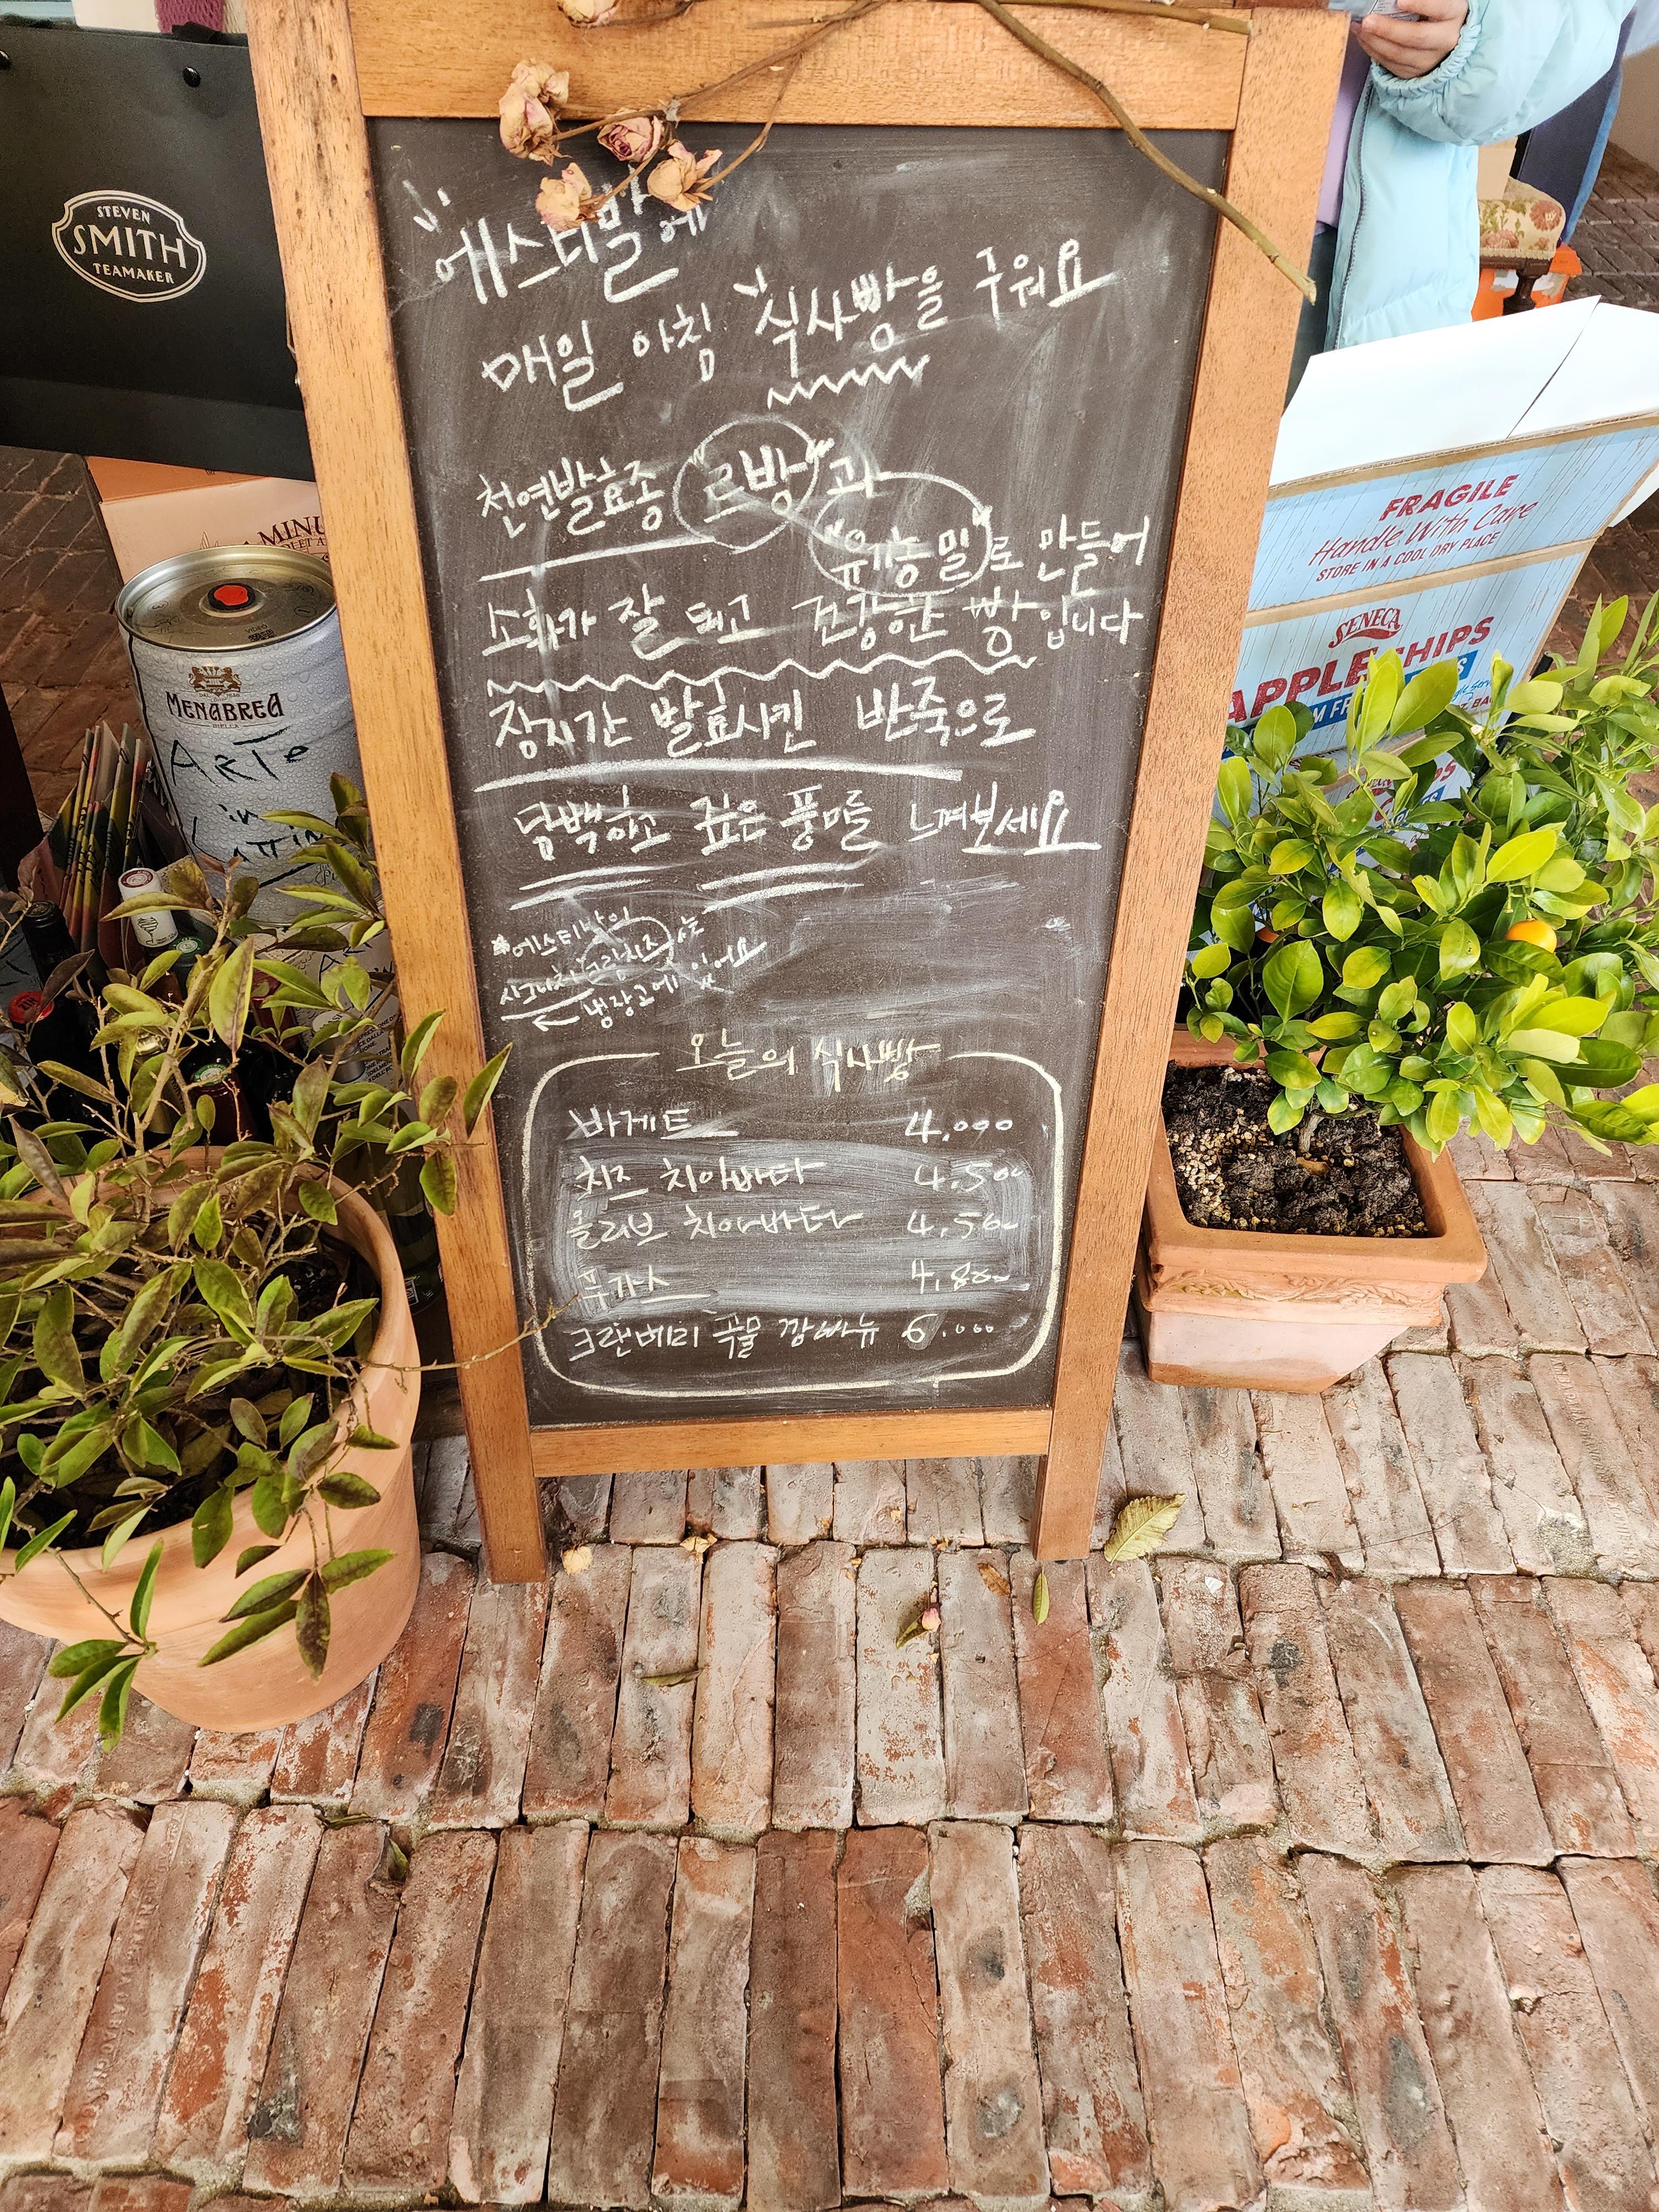 STEVEN
SMITH
TEAMAKER
MENABREA
ARTE
in
"에스티발에
매일 아침 "식사빵을 구워요
천연발효종 "르방"과
"유기농밀"로 만들어
소화가 잘 되고 건강한 빵입니다
장시간 발효시킨 반죽으로
담백하고 깊은 풍미를 느껴보세요
*에스티발의
는
← 냉장고에 있어요
오늘의 식사빵
바게트 4,000
치즈 치아바타 4,500
올리브 치아바타 4,500
푸가스 4,800
크랜베리 곡물 깜빠뉴 6,000
FRAGILE
Handle With Care
STORE IN A COOL DRY PLACE
SENECA
APPLE CHIPS